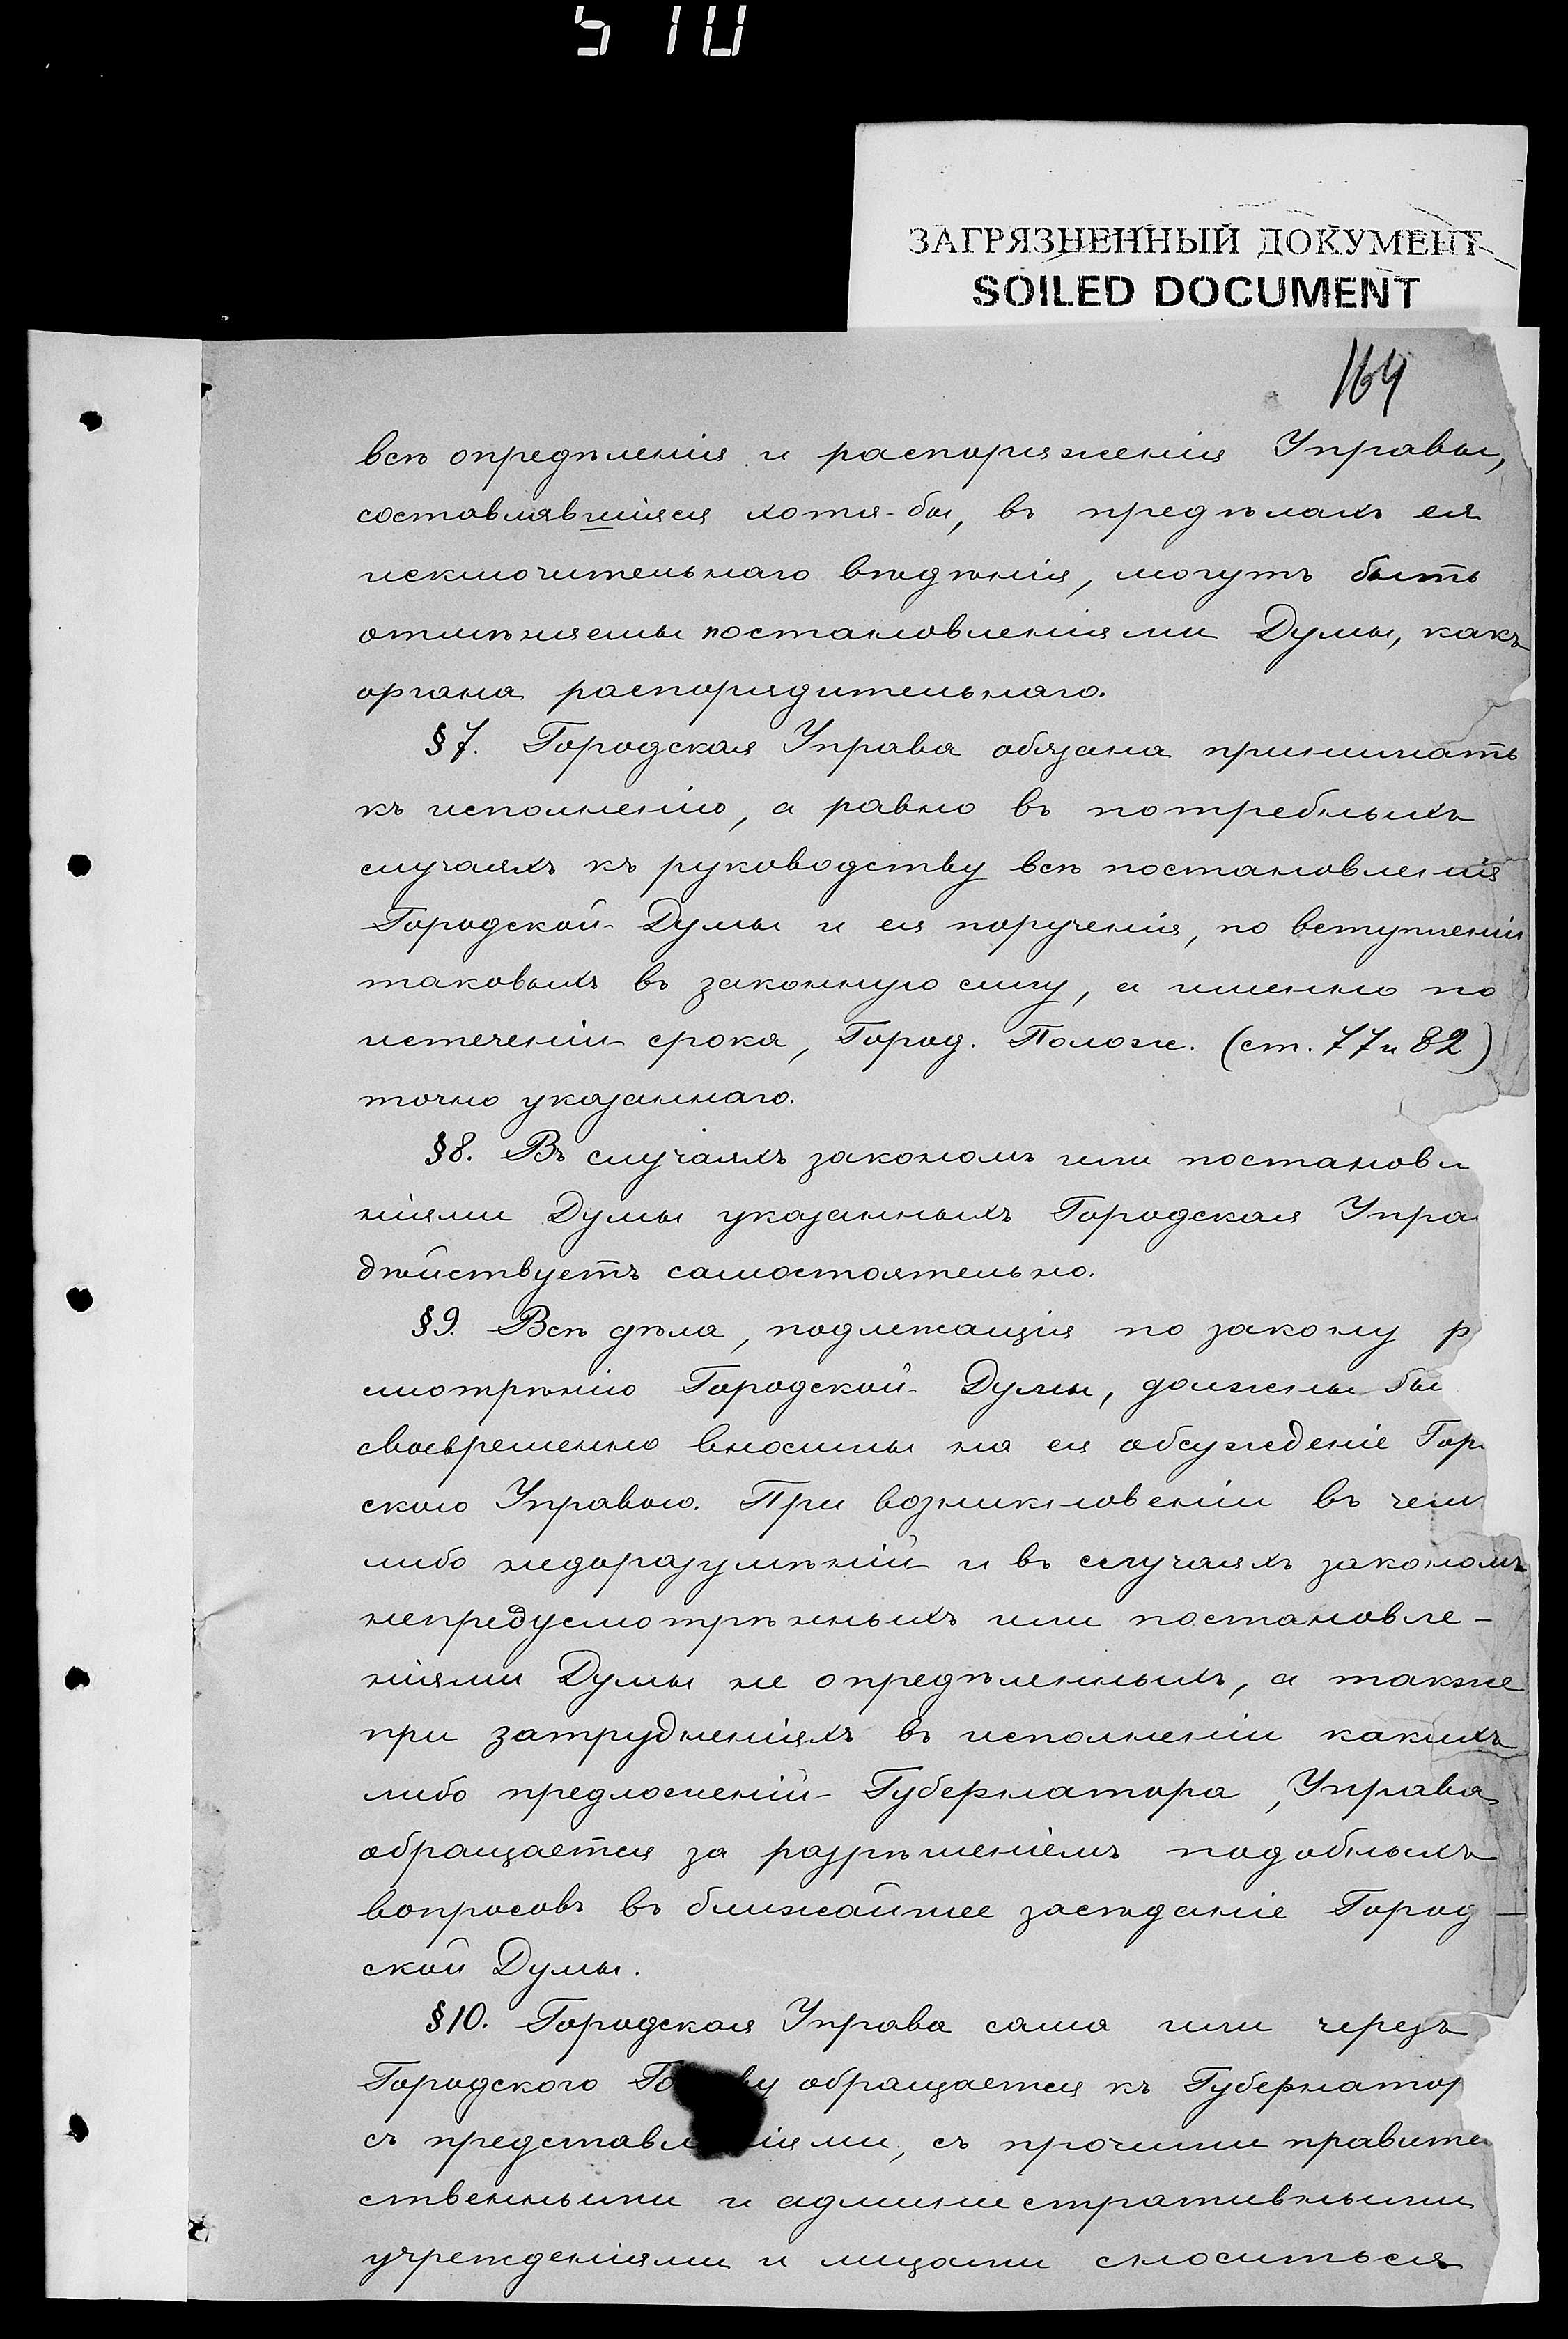 510
ЗАГРЯЗНЕННЫЙ ДОКУМЕНТ
SOILED DOCUMENT
164
всѣ опредѣленія и распоряженія Управы,
составлявшіяся хотя-бы, въ предѣлахъ ея
исключительнаго вѣдѣнія, могутъ быть
отмѣняемы постановленіями Думы, какъ
органа распорядительнаго.
§7. Городская Управа обязана принимать
къ исполненію, а равно въ потребныхъ
случаяхъ къ руководству всѣ постановленія
Городской Думы и ея порученія, по вступленіи
таковыхъ въ законную силу, а именно по
истеченіи срока, Город. Полож. (ст. 77 и 82)
точно указаннаго.
§8. Въ случаяхъ закономъ или постановл
ніями Думы указанныхъ Городская Упра
дѣйствуетъ самостоятельно.
§9. Всѣ дѣла, подлежащія по закону р
смотрѣнію Городской Думы, должны бы
своевременно вносимы на ея обсужденіе Гор
скою Управою. При возникновеніи въ чем
либо недоразумѣній и въ случаяхъ закономъ
непредусмотрѣнныхъ или постановле-
ніями Думы не опредѣленныхъ, а также
при затрудненіяхъ въ исполненіи какихъ
либо предложеній Губернатора, Управа
обращается за разрѣшеніемъ подобныхъ
вопросовъ въ ближайшее засѣданіе Город-
ской Думы.
§10. Городская Управа сама или черезъ
Городского Го ву обращается къ Губернатор
съ представл ніями, съ прочими правите
ственными и административными
учрежденіями и лицами сноситься